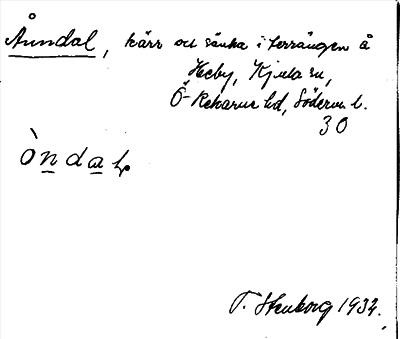 Åundal, kärr och sänka i terrängen å
Heby, Kjula sn,
Ö-Rekarne hd, Söderm. l.
30
òndal
T. Stenborg 1932.